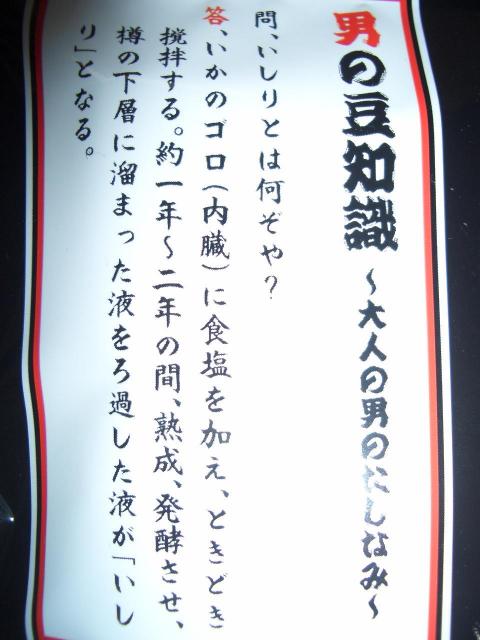 男の豆知識 ～大人の男のたしなみ～
問、いしりとは何ぞや?
答、いかのゴロ(内臓)に食塩を加え、ときどき
攪拌する。約一年～二年の間、熟成、発酵させ、
樽の下層に溜まった液をろ過した液が「いし
り」となる。